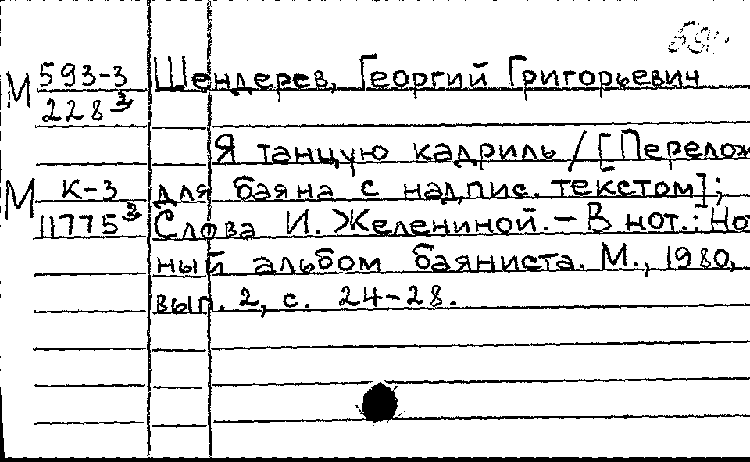 М 593-3 Шендерев, Георгий Григорьевич
228³
Я танцую кадриль / [Перелож
М К-3 для баяна с надпис. текстом];
11775³ Слова И. Желениной. – В нот.: Но
ный альбом баяниста. М., 1980,
вып. 2, с. 24-28.